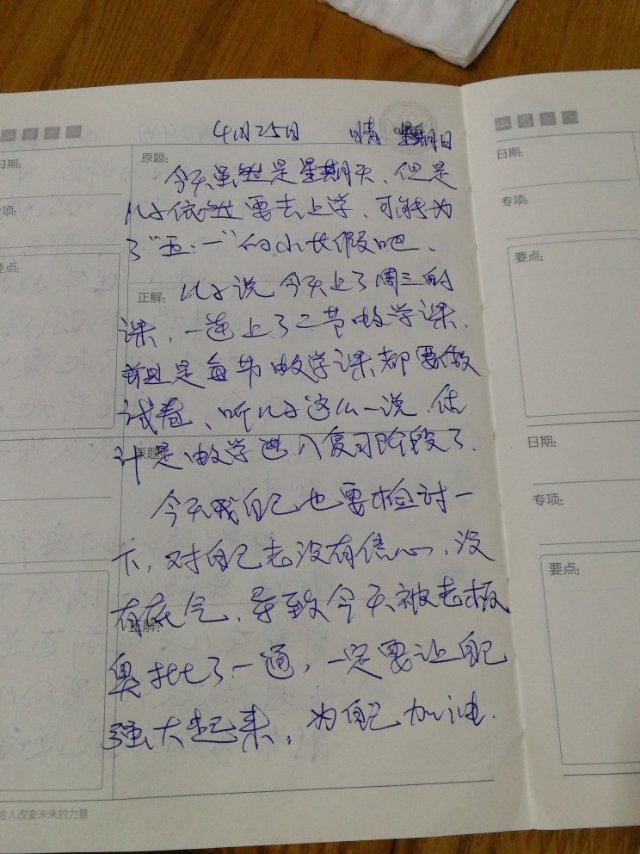 4月25日 晴 星期日
日期:
原题:
日期:
今天虽然是星期天，但是
专项:
儿子依然要去上学，可能为
专项:
了“五·一”的小长假吧、
要点:
要点:
正解:
儿子说今天上了周三的
课，一连上了二节数学课，
并且是每节数学课都要做
试卷、听儿子这么一说，估
日期:
原题:
计是数学进入复习阶段了．
专项:
今天我自己也要检讨一
下，对自己老没有信心，没
要点:
正解:
有底气，导致今天被老板
臭批了一通，一定要让自己
强大起来，为自己加油．
给人改变未来的力量